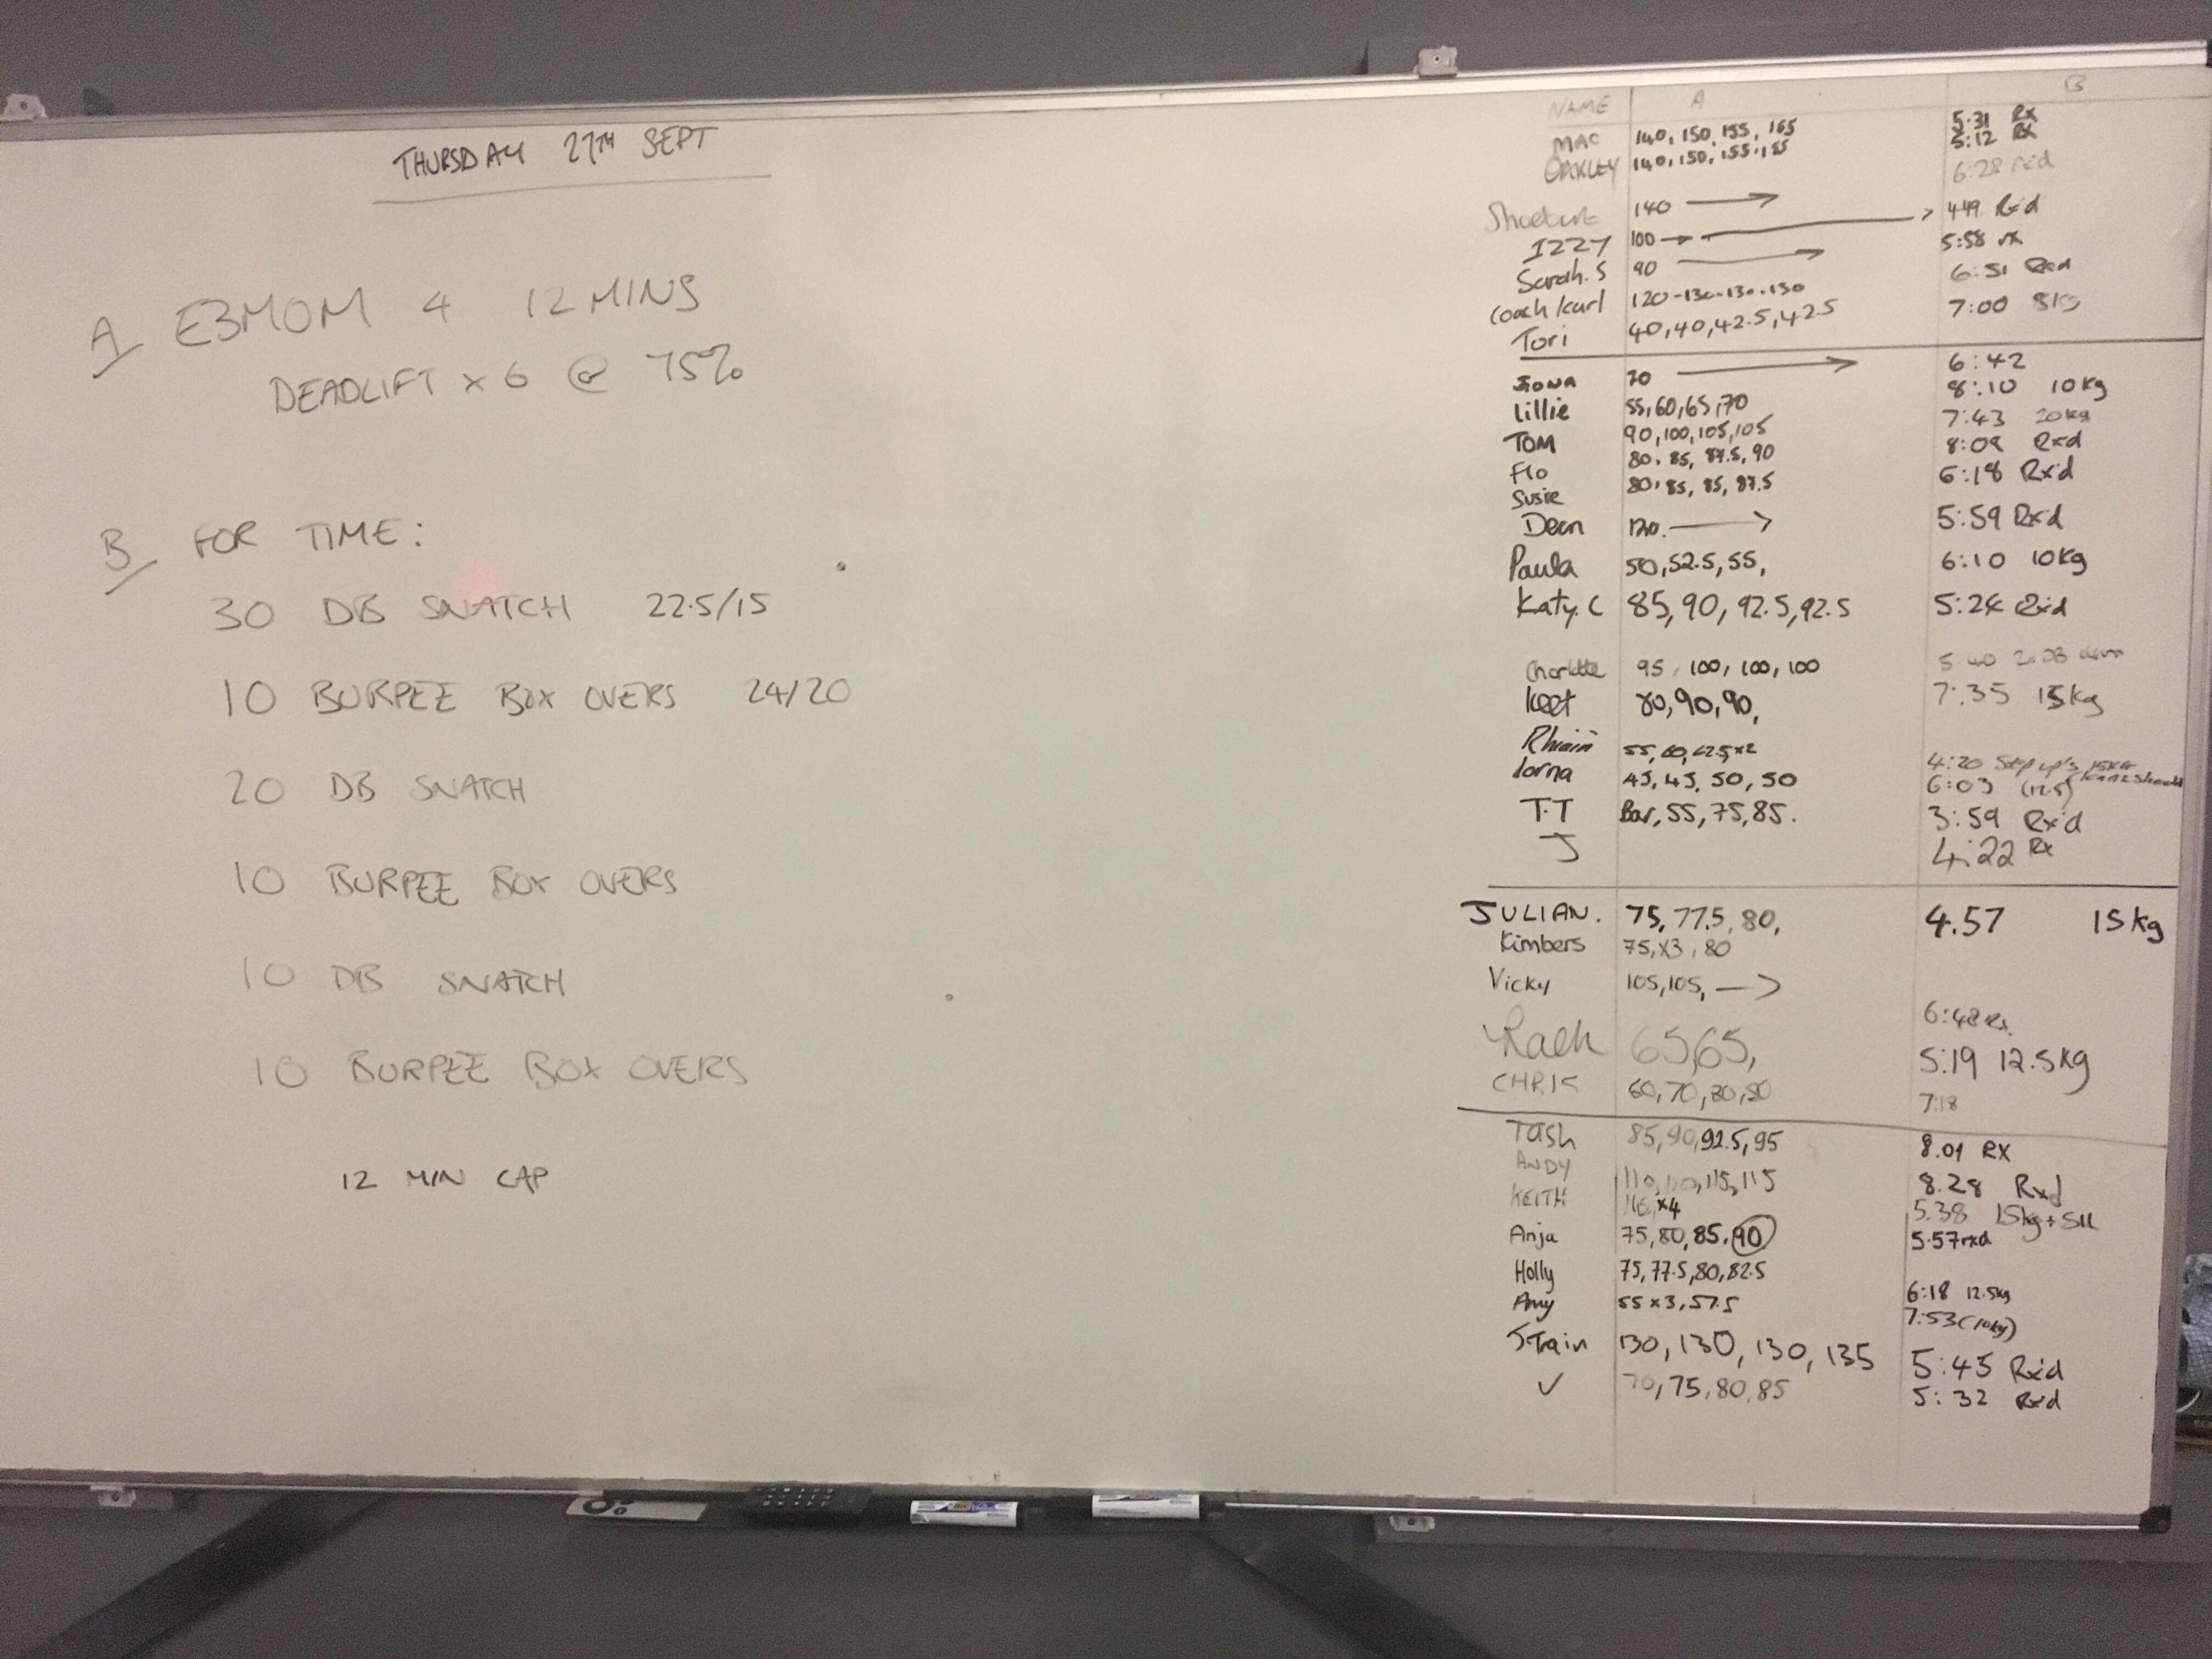 THURSDAY 27TH SEPT
A E3MOM 4 12 MINS
DEADLIFT x 6 @ 75%
B FOR TIME:
30 DB SNATCH 22.5/15
10 BURPEE BOX OVERS 24/20
20 DB SNATCH
10 BURPEE BOX OVERS
10 DB SNATCH
10 BURPEE BOX OVERS
12 MIN CAP
NAME A B
MAC 140, 150, 155, 165 5:31 Rx
OAKLEY 140, 150, 155, 155 5:12 Rx
6:28 rxd
140 →
IZZY 100 → → 4:49 Rx'd
Sarah.S 90 → 5:58 rx
Coach Karl 120-130-130-130 6:51 Rxd
Tori 40, 40, 42.5, 42.5 7:00 8kg
Fiona 70 → 6:42
Lillie 55, 60, 65, 70 8:10 10kg
TOM 90, 100, 105, 105 7:43 20kg
Flo 80, 85, 87.5, 90 8:09 Rxd
Susie 80, 85, 85, 87.5 6:18 Rx'd
Dean 120. → 5:59 Rx'd
Paula 50, 52.5, 55, 6:10 10kg
Katy.C 85, 90, 92.5, 92.5 5:24 Rxd
Charlotte 95, 100, 100, 100 5:40
80, 90, 90, 7:35 15kg
55, 60, 62.5x2 4:20 Step up's 15KG
Lorna 45, 45, 50, 50 6:03 (12.5)
T.T Bar, 55, 75, 85. 3:59 Rx'd
J 4:22 Rx
JULIAN. 75, 77.5, 80, 4.57 15kg
Kimbers 75, x3, 80
Vicky 105, 105, →
6:48 Rx
Rach 65, 65, 5:19 12.5kg
CHRIS 60, 70, 80, 80 7:18
Tash 85, 90, 92.5, 95 8.01 RX
ANDY 110, 110, 115, 115 8.28 Rxd
KEITH x4 5.38 15kg +
Anja 75, 80, 85, 90 5.57 rxd
Holly 75, 77.5, 80, 82.5
Amy 55 x 3, 57.5 6:18 12.5kg
7:53 (10kg)
JTrain 130, 130, 130, 135 5:45 Rx'd
V 70, 75, 80, 85 5:32 Rx'd